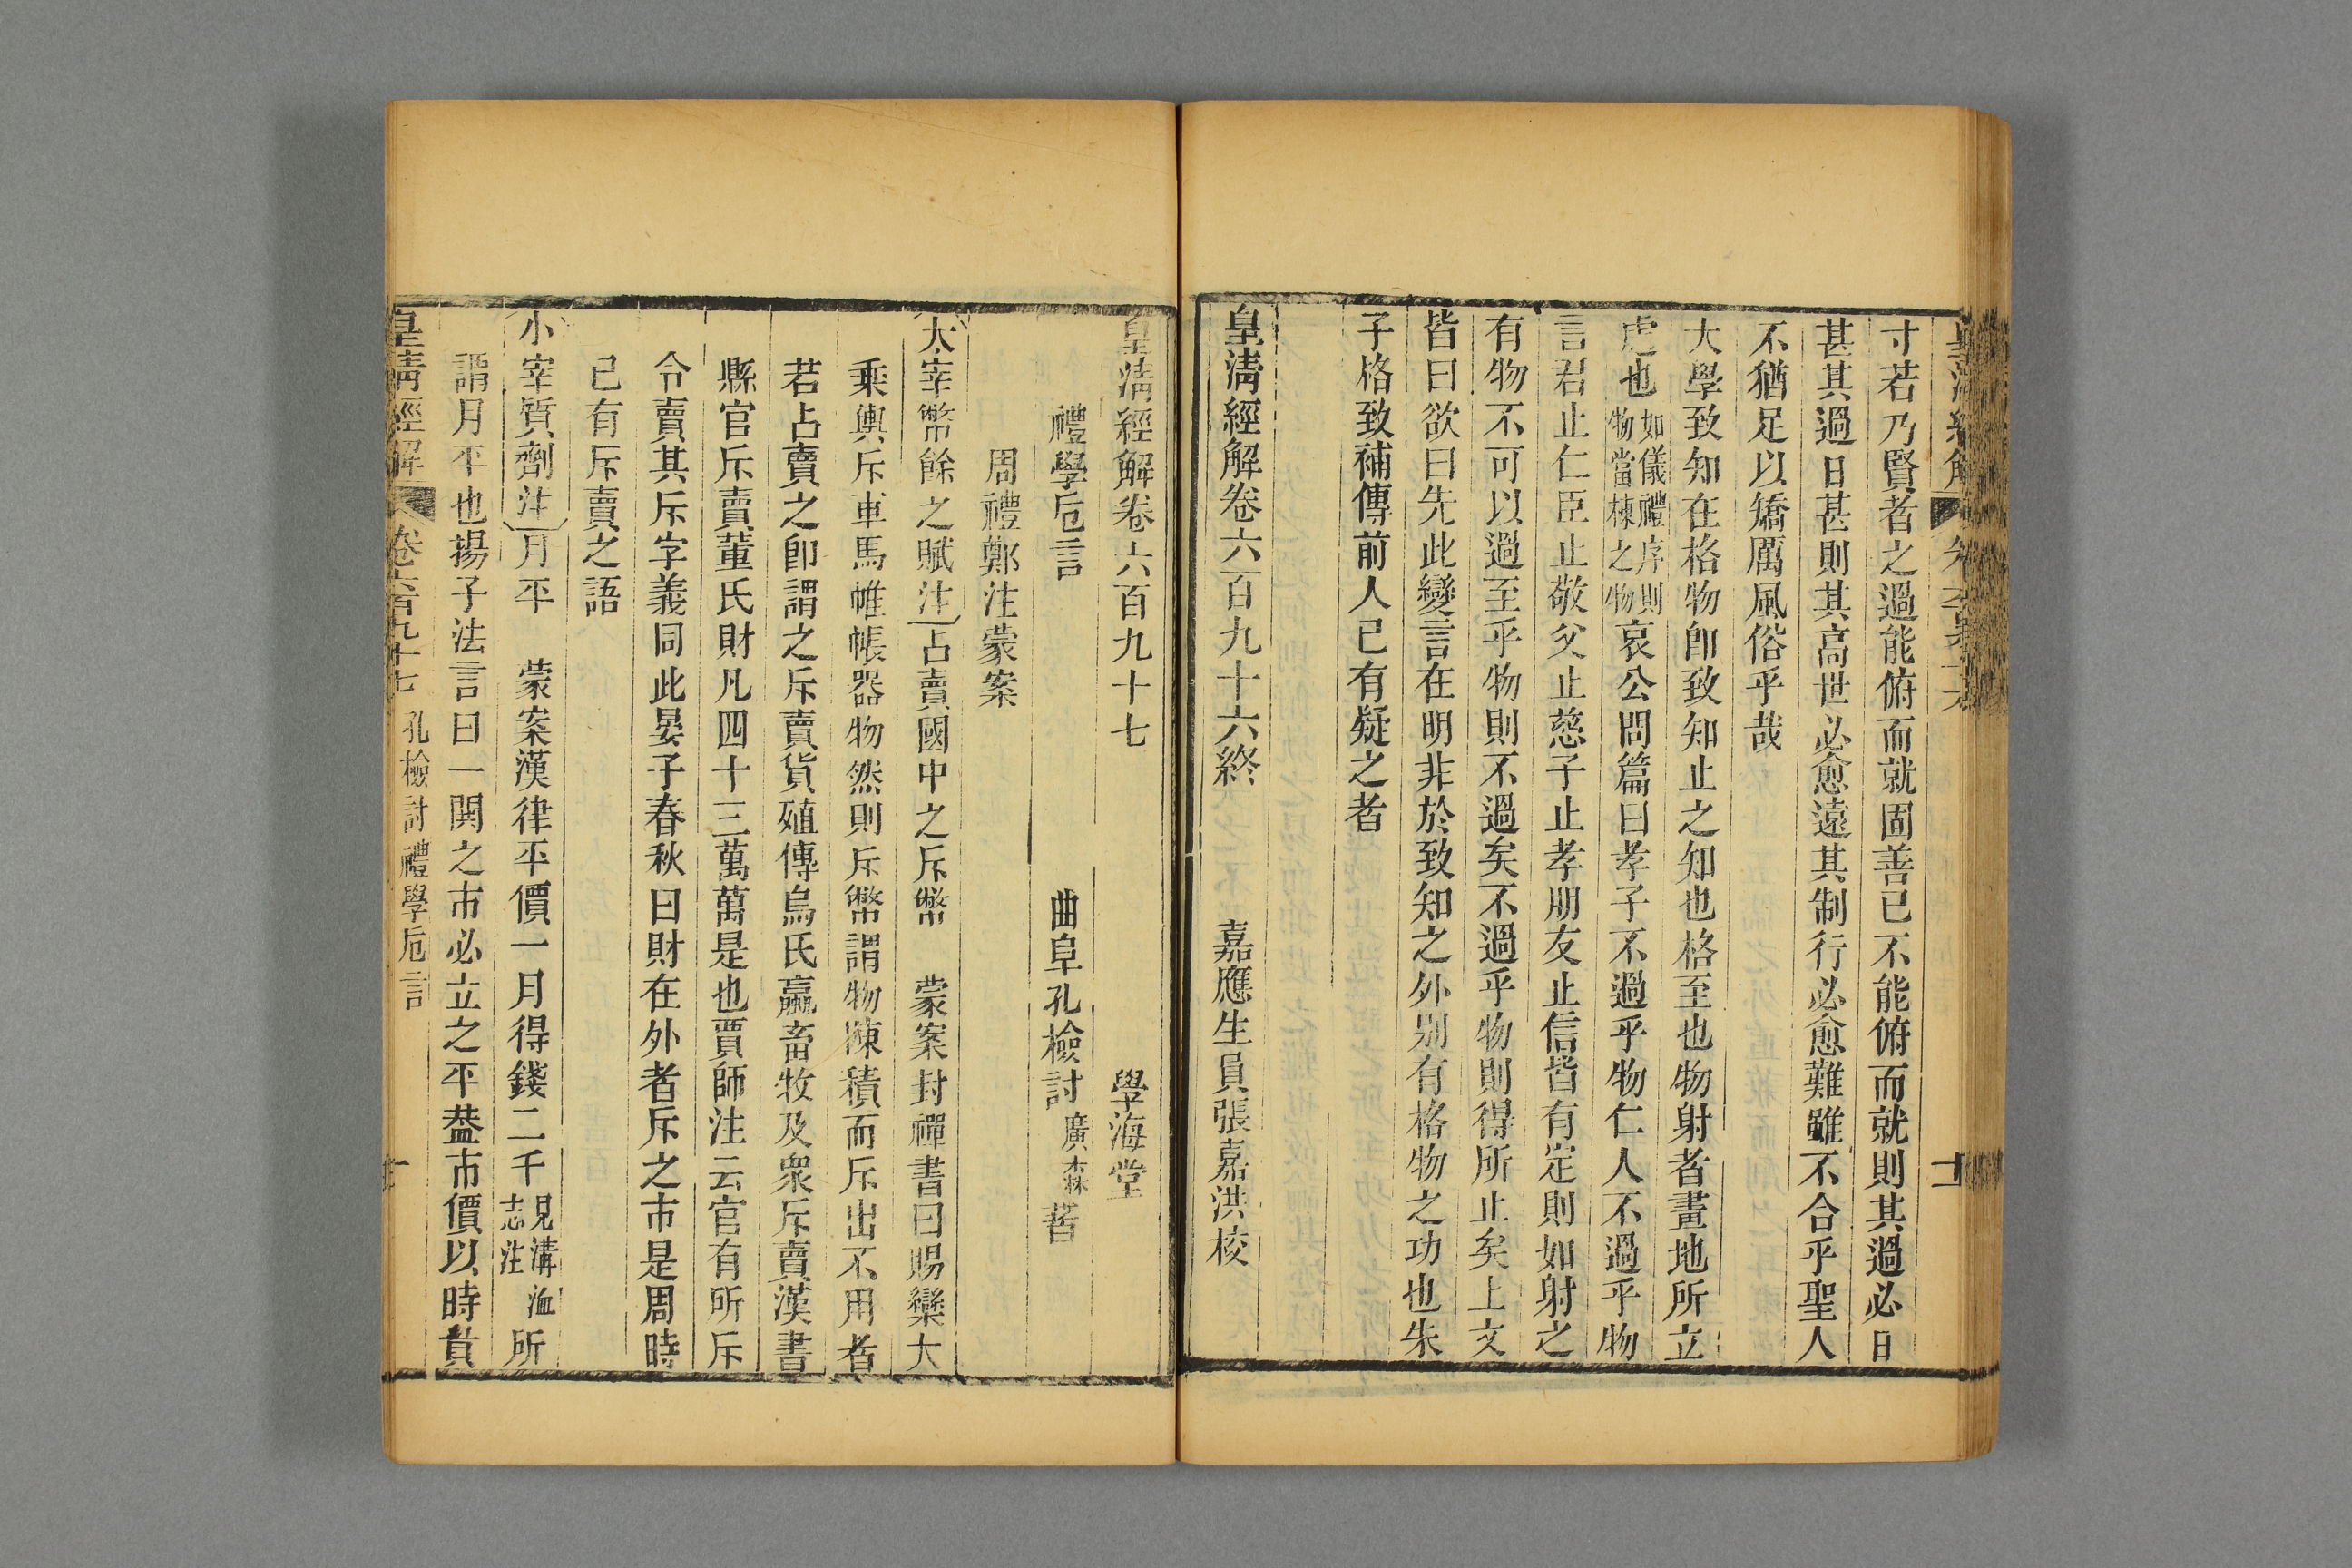 寸若乃賢者之過能俯而就固善已不能俯而就則其過必日
甚其過日甚則其高世必愈遠其制行必愈難雖不合乎聖人
不猶足以矯厲風俗乎哉
大學致知在格物卽致知止之知也格至也物射者畫地所立
處也如儀禮序則物當棟之物哀公問篇曰孝子不過乎物仁人不過乎物
言君止仁臣止敬父止慈子止孝朋友止信皆有定則如射之
有物不可以過至乎物則不過矣不過乎物則得所止矣上文
皆曰欲曰先此變言在明非於致知之外別有格物之功也朱
子格致補傳前人已有疑之者
皇淸經解卷六百九十六終 嘉應生員張嘉洪校
皇淸經解卷六百九十七 學海堂
禮學卮言 曲阜孔檢討廣森著
周禮鄭注蒙案
大宰幣餘之賦注占賣國中之斥幣 蒙案封禪書曰賜欒大
乘輿斥車馬帷帳器物然則斥幣謂物陳積而斥出不用者
若占賣之卽謂之斥賣貨殖傳烏氏蠃畜牧及衆斥賣漢書
縣官斥賣董氏財凡四十三萬萬是也賈師注云官有所斥
令賣其斥字義同此晏子春秋曰財在外者斥之市是周時
已有斥賣之語
小宰質劑注月平 蒙案漢律平價一月得錢二千見溝洫志注所
謂月平也揚子法言曰一閧之市必立之平葢市價以時貴
皇淸經解 卷六百九十七 孔檢討禮學卮言 一